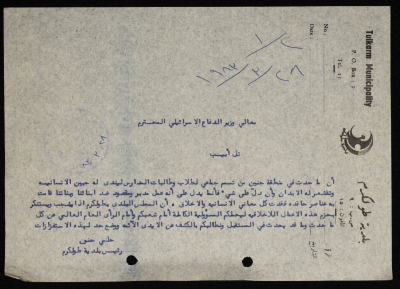 Tulkarm Municipality
P. O. Box : 2
Tel. 41
No.:
Date:
بلدية طولكرم
٢ / ١
٢٨ / ٣ / ١٩٨٣
معالي وزير الدفاع الاسرائيلي المحترم
تل أبيب
أن ما حدث في منطقة جنين من تسمم جماعي لطلاب وطالبات المدارس ليندى له جبين الانسانيه
وتقشعر له الابدان وأن دل على شيء فأنما يدل على أنه عمل مدبر ومقصود ضد ابنائنا وبناتنا قامت
به عناصر حاقده فقدت كل معاني الانسانيه والاخلاق ، أن المجلس البلدي بطولكرم اذا يشجب ويستنكر
بحزم هذه الاعمال اللااخلاقيه ليحملكم المسؤولية الكاملة أمام شعبكم وأمام الرأى العام العالمي عن كل
ما حدث وما قد يحدث في المستقبل ونطالبكم بالكشف عن الايدى الآثمه ووضع حد لهذه الاستفزازات
حلمي حنون
رئيس بلدية طولكرم